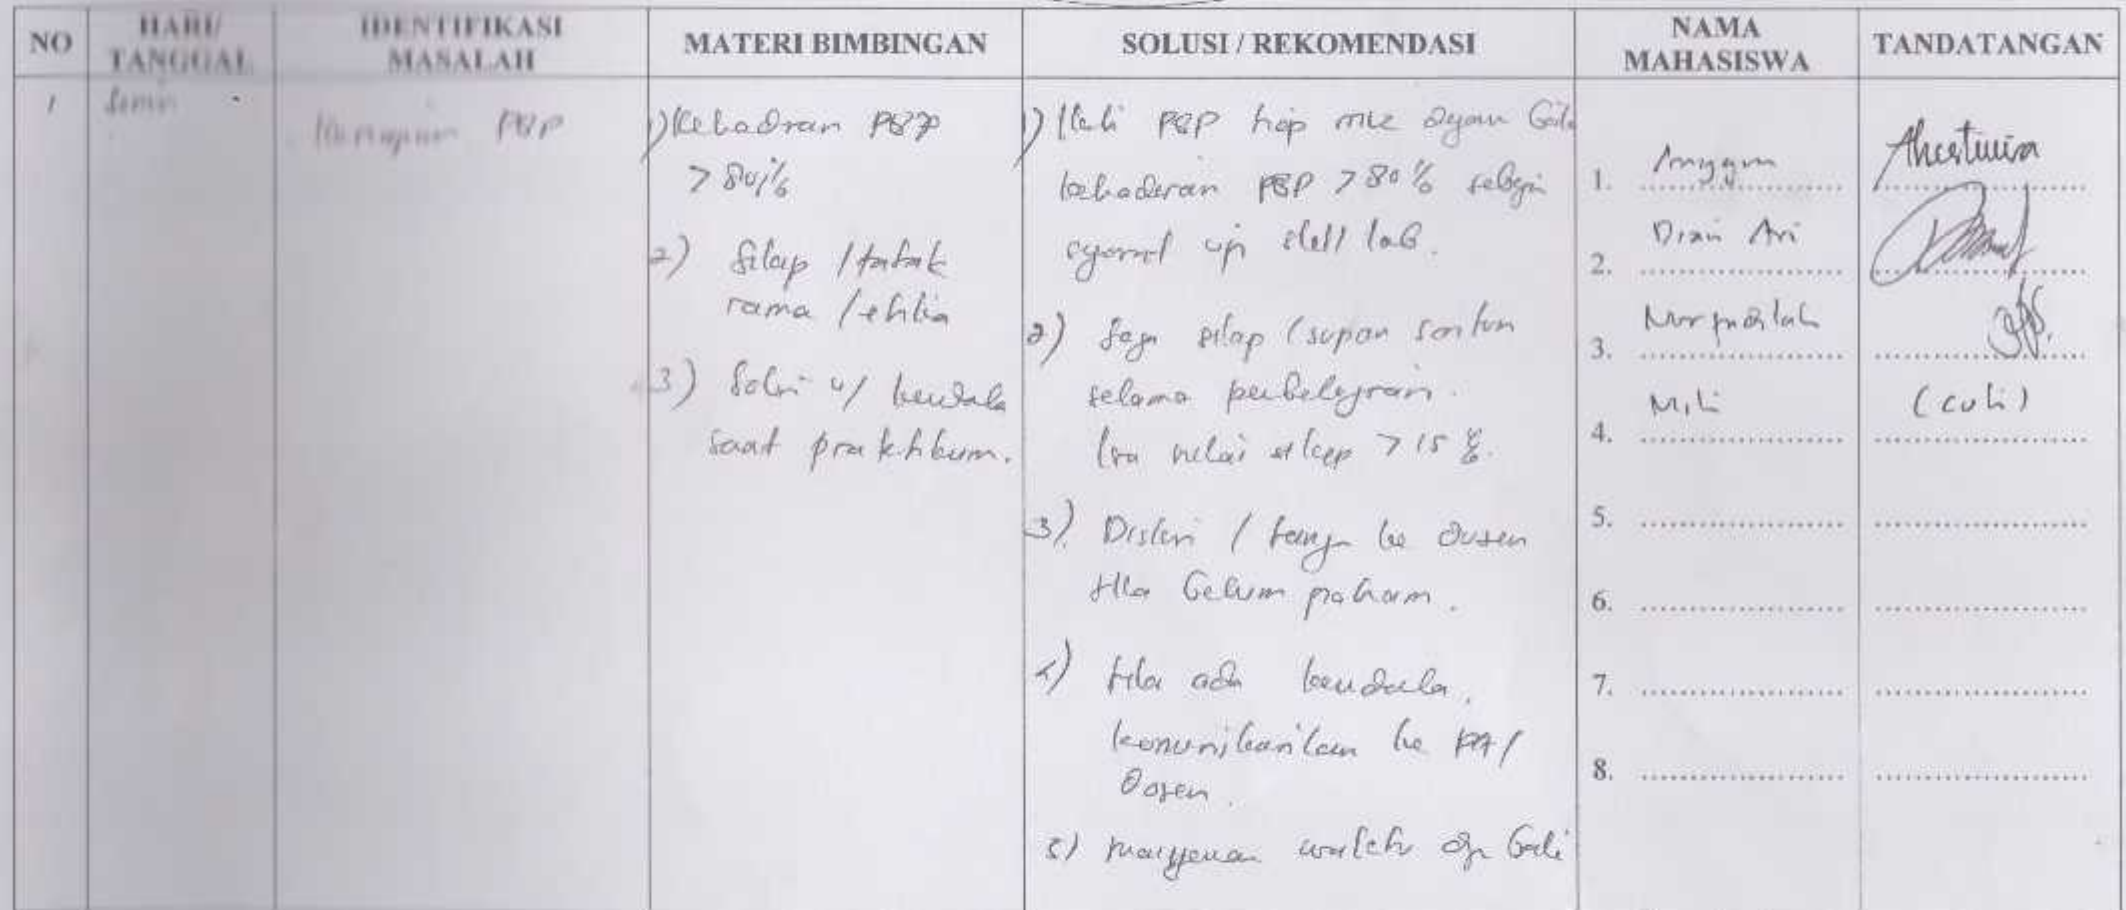 NO
HARI/
TANGGAL
IDENTIFIKASI
MASALAH
MATERI BIMBINGAN
SOLUSI / REKOMENDASI
NAMA
MAHASISWA
TANDATANGAN
1
Senin
PBP
1) Kehadiran PBP
> 80%
2) Sikap / tatak
rama / etika
3) Solusi u/ kendala
saat praktikum.
1) PBP
kehadiran PBP > 80% sebagai
syarat uji skill lab.
2) Jaga sikap / sopan santun
selama pembelajaran.
nilai sikap > 15 %.
3). Diskusi / tanya ke dosen
bila belum paham.
4) bila ada kendala,
komunikasikan ke PA /
Dosen.
5) waktu dg baik
1. Anggun
2. Dian Ari
3.
4. Mili
(cuti)
5.
6.
7.
8.